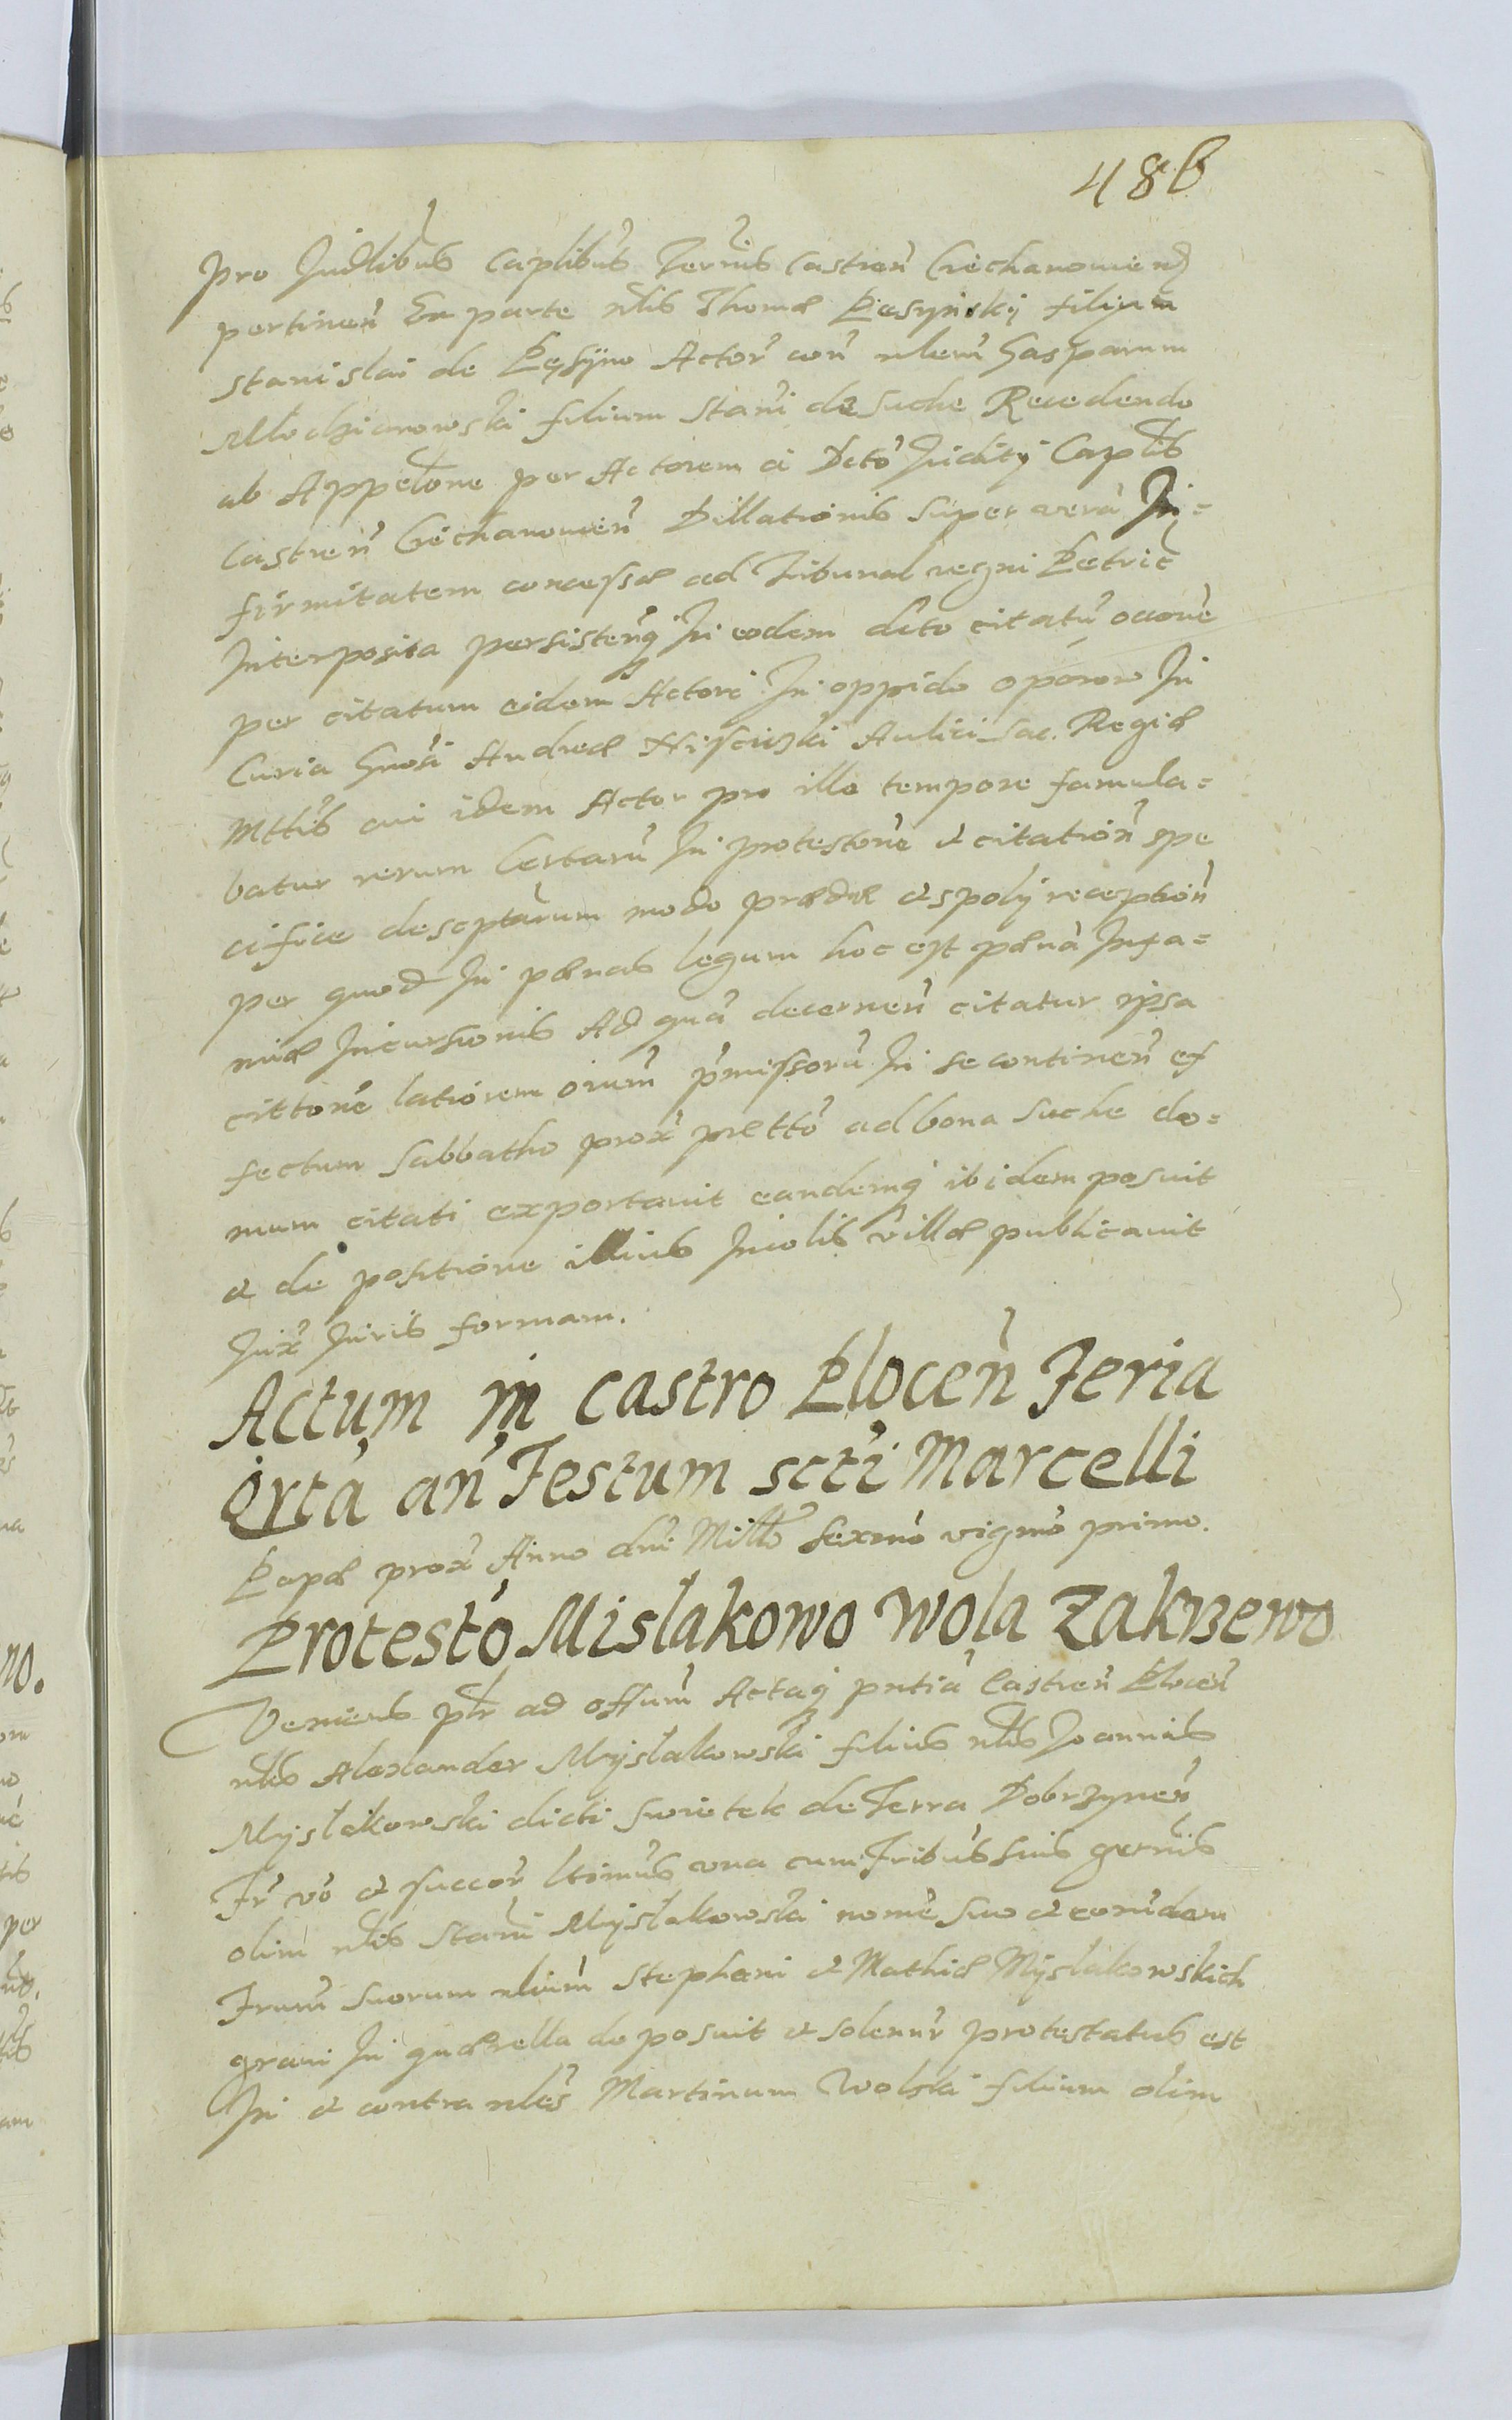 486
pro Judlibus Caplibus Termis Castren Ciechanomien
pertinen Ex parte nlis Thomæ Pęsynskj filium
stanislai de Pęsyno Actor con nlem Gasparum
Młodzianowski filium Stani de Suche Recedendo
ab Appelone per Actorem a Dcto Judity Caplis
Castren Ciechanomien Dillationis super vera In=
firmitatem concessæ ad Tribunal regni Petric
Interposita persistenq In eodem dcto citatu ocone
per citatum eidem Actori In oppido oporow In
Curia Gnosi Andreæ Nisciski Aulici Sac. Regiæ
Mttis cui idem Actor pro illo tempore famula=
batur rerum Certaru In protestone et citation spe
cifice descptarum modo prædæ et spolij reception
per quod In pænas legum hoc est pæna Infa=
miæ Incursionis Ad qua decernen citatur ipsa
cittone latiorem oium pmissoru In se continen ef
fectum Sabbatho prox prætto ad bona Suche do=
mum citati exportauit eandemq ibidem posuit
et de positione illius Incolis villæ publicauit
Jux Juris formam.
Actum in castro Plocen Feria
Qrta an Festum scti Marcelli
Papæ prox Anno dni Millo Sexmo vigmo primo.
Protesto Misłakowo Wola Zakrzewo
Veniens plr ad offum Actaq pntia Castren Plocen
nlis Alexander Mysłakowski filius nlis Joannis
Mysłakowski dicti Swietek de Terra Dobrzynen
Fr vo et succor ltimus una cum Fribus suis germis
olim nlis Stani Mysłakowski nome suo et eorundem
Frum suorum nlium Stephani et Mathiæ Mysłakowskich
graui In quærella deposuit et solennr protestatus est
In et contra nles Martinum Wolski filium olim